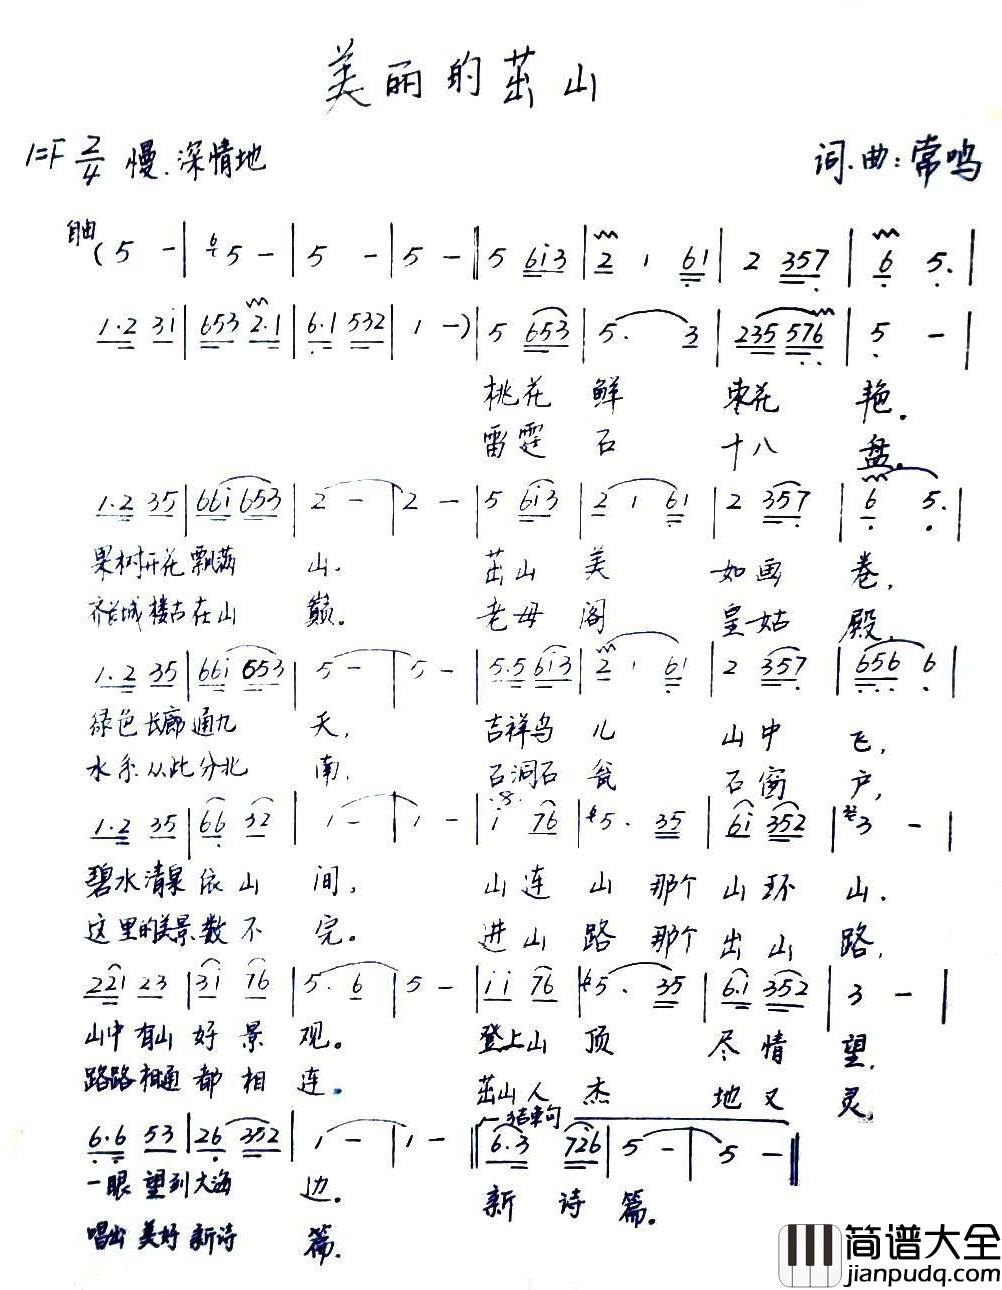 美丽的茁山
1=F 2/4 慢.深情地 词.曲:常鸣
自由
(5 - | 5 - | 5 - | 5 - ‖ 5 6i3 | 2 1 61 | 2 357 | 6 5. |
1.2 3i | 653 2.1 | 6.1 532 | 1 -) | 5 653 | 5. 3 | 235 576 | 5 - |
桃花 鲜 枣花 艳。
雷霆 石 十八 盘。
1.2 35 | 66i 653 | 2 - | 2 - | 5 6i3 | 2 1 61 | 2 357 | 6 5. |
果树开花飘满 山. 茁山 美 如画 卷,
齐长城楼古在山 巅。 老母 阁 皇姑 殿,
1.2 35 | 66i 653 | 5 - | 5 - | 5.5 6i3 | 2 1 61 | 2 357 | 656 6 |
绿色长廊通九 天, 吉祥鸟 儿 山中 飞,
水系从此分北 南, 石洞石 瓮 石窗 户,
1.2 35 | 66 32 | 1 - | 1 - | i 76 | 5. 35 | 6i 352 | 3 - |
碧水清泉依山 间, 山连 山 那个 山环 山.
这里的美景数不 完。 进山 路 那个 出山 路,
22i 23 | 3i 76 | 5. 6 | 5 - | ii 76 | 5. 35 | 6.i 352 | 3 - |
山中有山好景 观。 登上山 顶 尽情 望,
路路相通都相 连. 茁山人 杰 地又 灵,
结束句
6.6 53 | 26 352 | 1 - | 1 - ‖ 6.3 726 | 5 - | 5 - ‖
一眼望到大海 边。 新诗篇。
唱出美好新诗 篇.
简谱大全
jianpudq.com